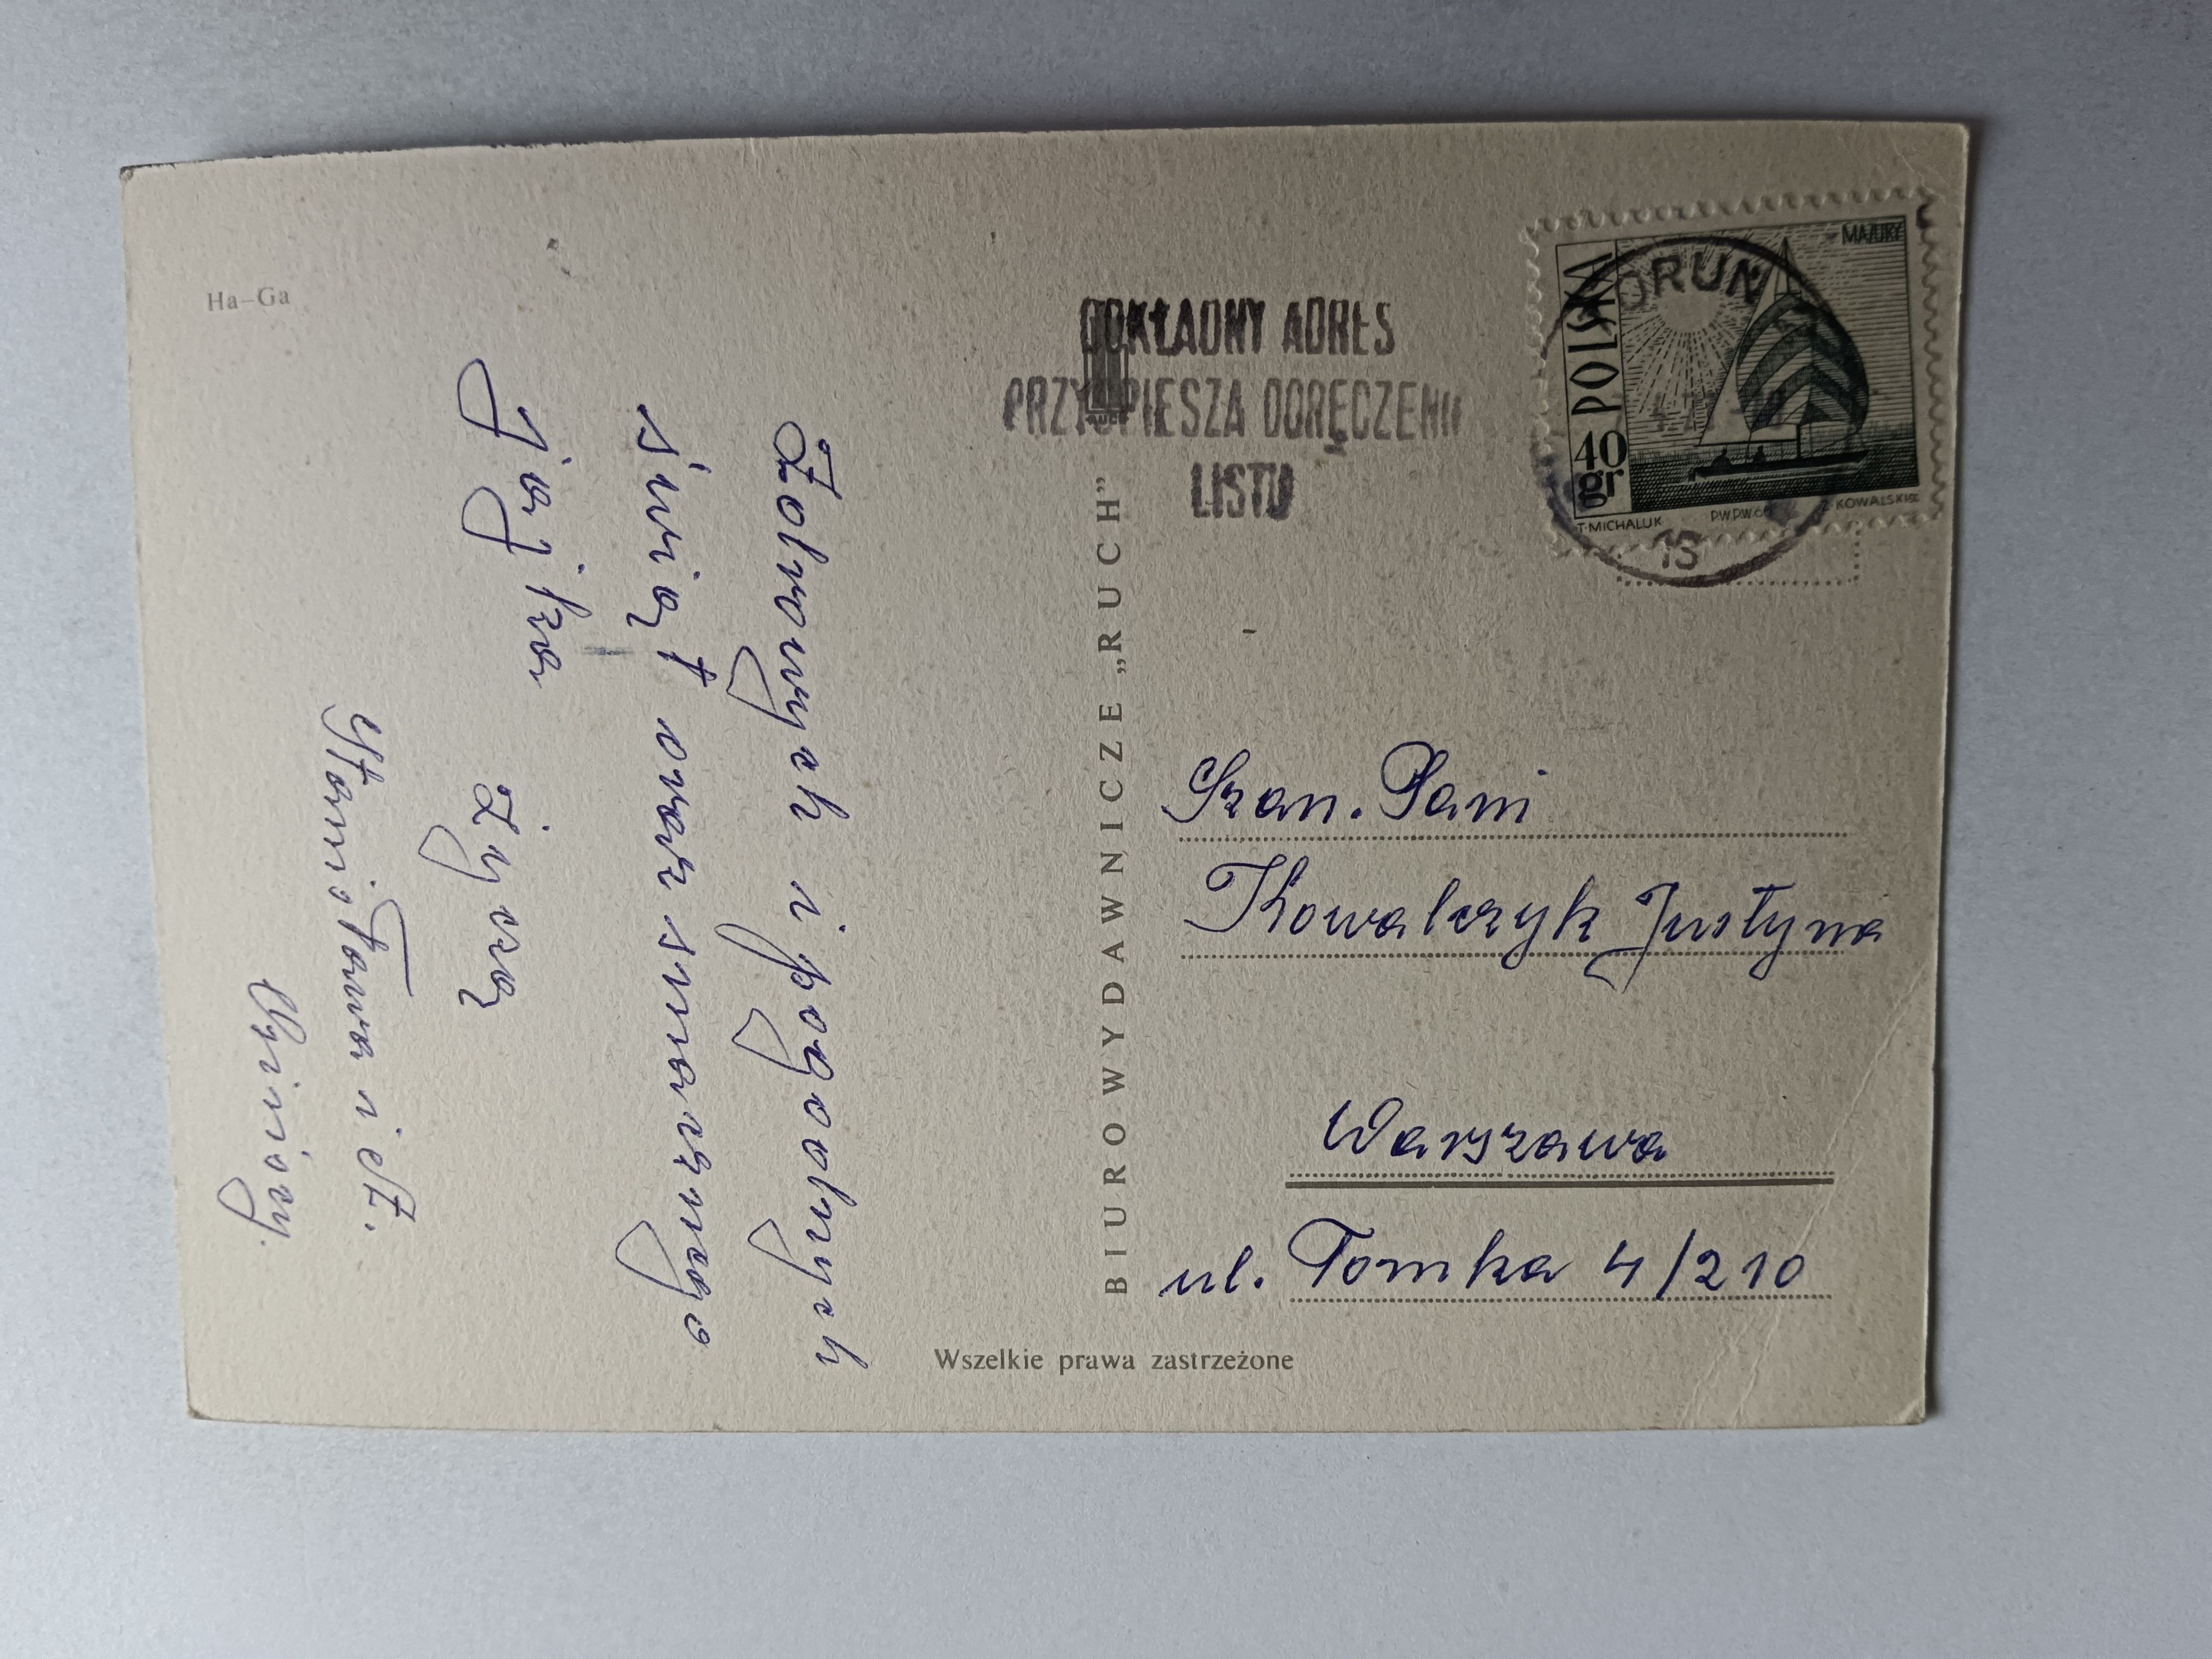 Ha-Ga
Zdrowych i pogodnych
świąt oraz smacznego
jajka
życzą
Stanisława i St.
DOKŁADNY ADRES
PRZYSPIESZA DORĘCZENIE
LISTU
TORUŃ
13
POLSKA
40
gr
MAZURY
T. MICHALUK
P.W.P.W. 66
Z. KOWALSKI SC.
BIURO WYDAWNICZE „RUCH”
Szan. Pani
Kowalczyk Justyna
Warszawa
ul. Tomka 4/210
Wszelkie prawa zastrzeżone